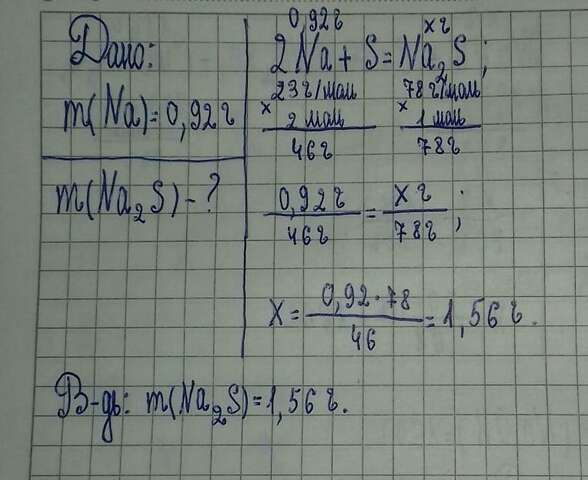 Дано:
m(Na)=0,92г
m(Na₂S)-?
0,92г xг
2Na + S = Na₂S;
23г/моль 78г/моль
× 2 моль × 1 моль
46г 78г
0,92г / 46г = xг / 78г ;
x = 0,92·78 / 46 = 1,56г.
В-дь: m(Na₂S)=1,56г.